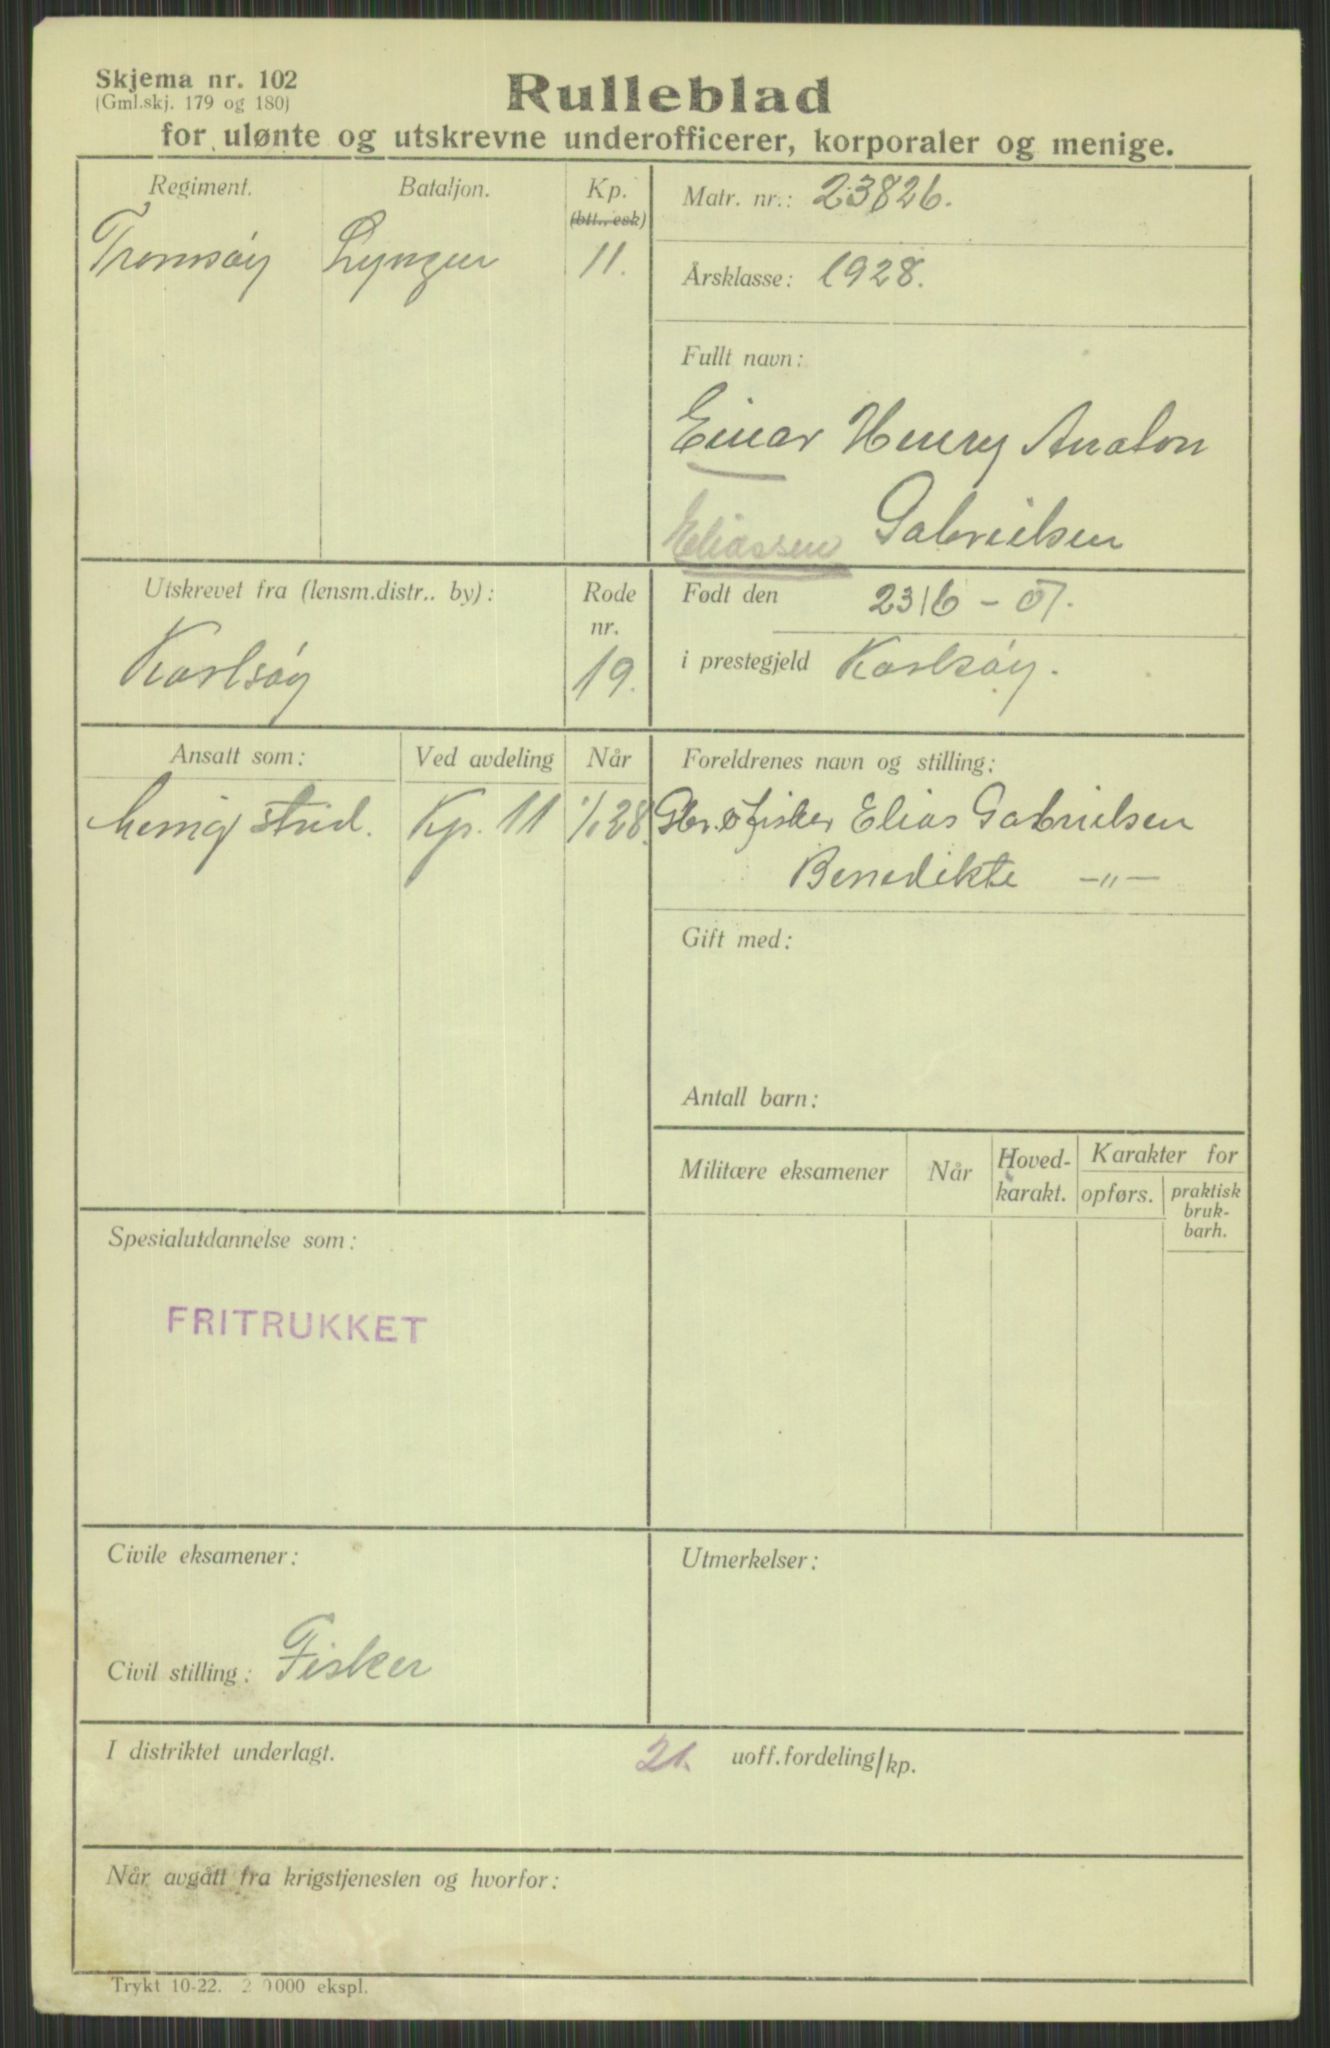 Skjema nr. 102
(Gml.skj. 179 og 180)
Rulleblad
for ulønte og utskrevne underofficerer, korporaler og menige.
Regiment.
Bataljon.
Kp.
(btt., esk)
Tromsøy
Lyngen
11.
Matr. nr.: 23826.
Årsklasse: 1928.
Fullt navn:
Einar Henry Anaton
Eliassen Gabrielsen
Utskrevet fra (lensm.distr.. by):
Karlsøy
Rode
nr.
19.
Født den 23/6 - 07.
i prestegjeld Karlsøy.
Ansatt som:
Ved avdeling
Når
menig strid.
Kp. 11
1/1 28.
Foreldrenes navn og stilling:
Gbr. & fisker Elias Gabrielsen
Benedikte -"-
Gift med:
Antall barn:
Militære eksamener
Når
Hoved-
karakt.
Karakter for
opførs.
praktisk
bruk-
barh.
Spesialutdannelse som:
FRITRUKKET
Civile eksamener:
Civil stilling: Fisker
Utmerkelser:
I distriktet underlagt.
21. uoff.fordeling/kp.
Når avgått fra krigstjenesten og hvorfor:
Trykt 10-22. 2 0000 ekspl.